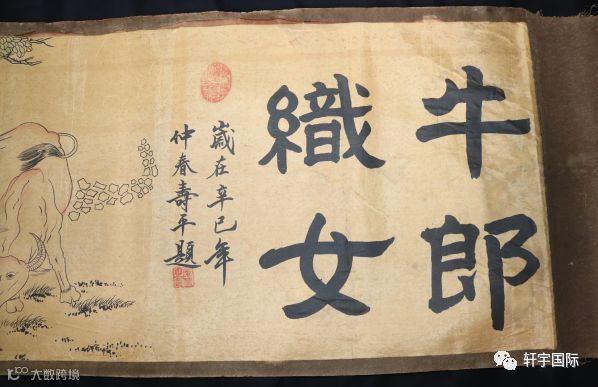 牛郎
織女
歲在辛巳年
仲春壽平題
轩宇国际
大数跨境